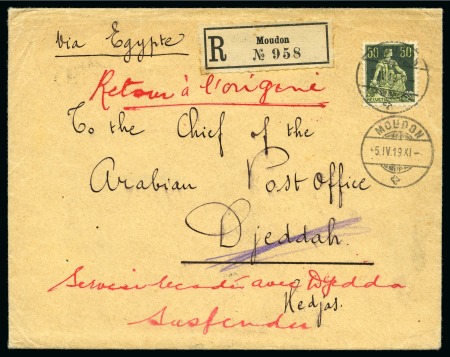 via Egypte
R Moudon
№ 958
50 50
Retour à l'origine
MOUDON
-5.IV.19 XI-
To the Chief of the
Arabian Post Office
Djeddah.
Service avec Djedda
Hedjas.